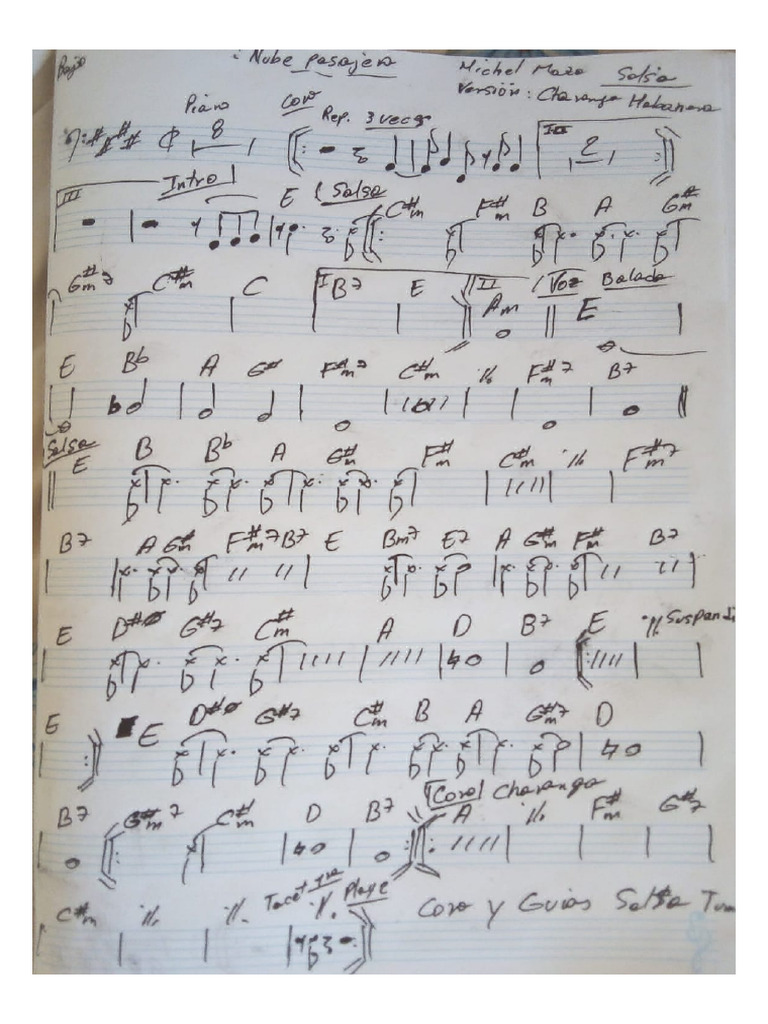 Bajo : Nube pasajera Michel Maza Salsa
Versión: Charanga Habanera
Piano 8 Coro Rep. 3 veces I II 2
III Intro E Salsa C#m F#m B A G#m
G#m7 C#m C I B7 E II Am Voz Balada E
E Bb A G# F#m7 C#m % F#m7 B7
Salsa E B Bb A G#m F#m C#m % F#m7
B7 A G#m F#m7 B7 E Bm7 E7 A G#m F#m B7
E D#ø G#7 C#m A D B7 E %
E E D#ø G#7 C#m B A G#m7 D
B7 G#m7 C#m D B7 Coro Charanga A % F#m G#7
C#m % % Tacet % Playe Coro y Guias Salsa